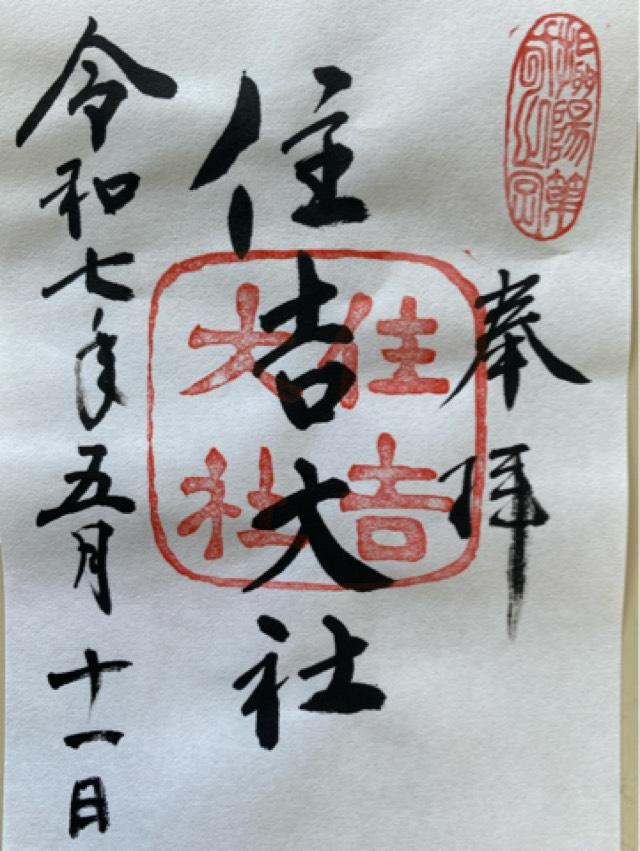 奉拝
住吉大社
住吉
大社
令和七年五月十一日